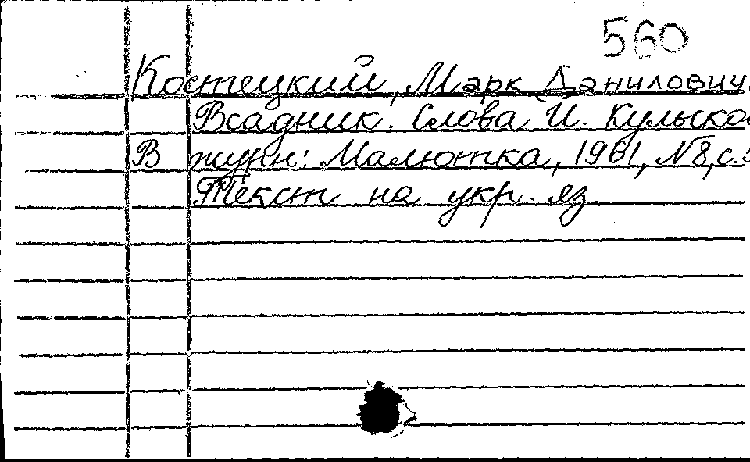 560
Костецкий, Марк Данилович.
Всадник. Слова И. Кульско
В журн: Малютка, 1961, №8, с.
Текст на укр. яз.